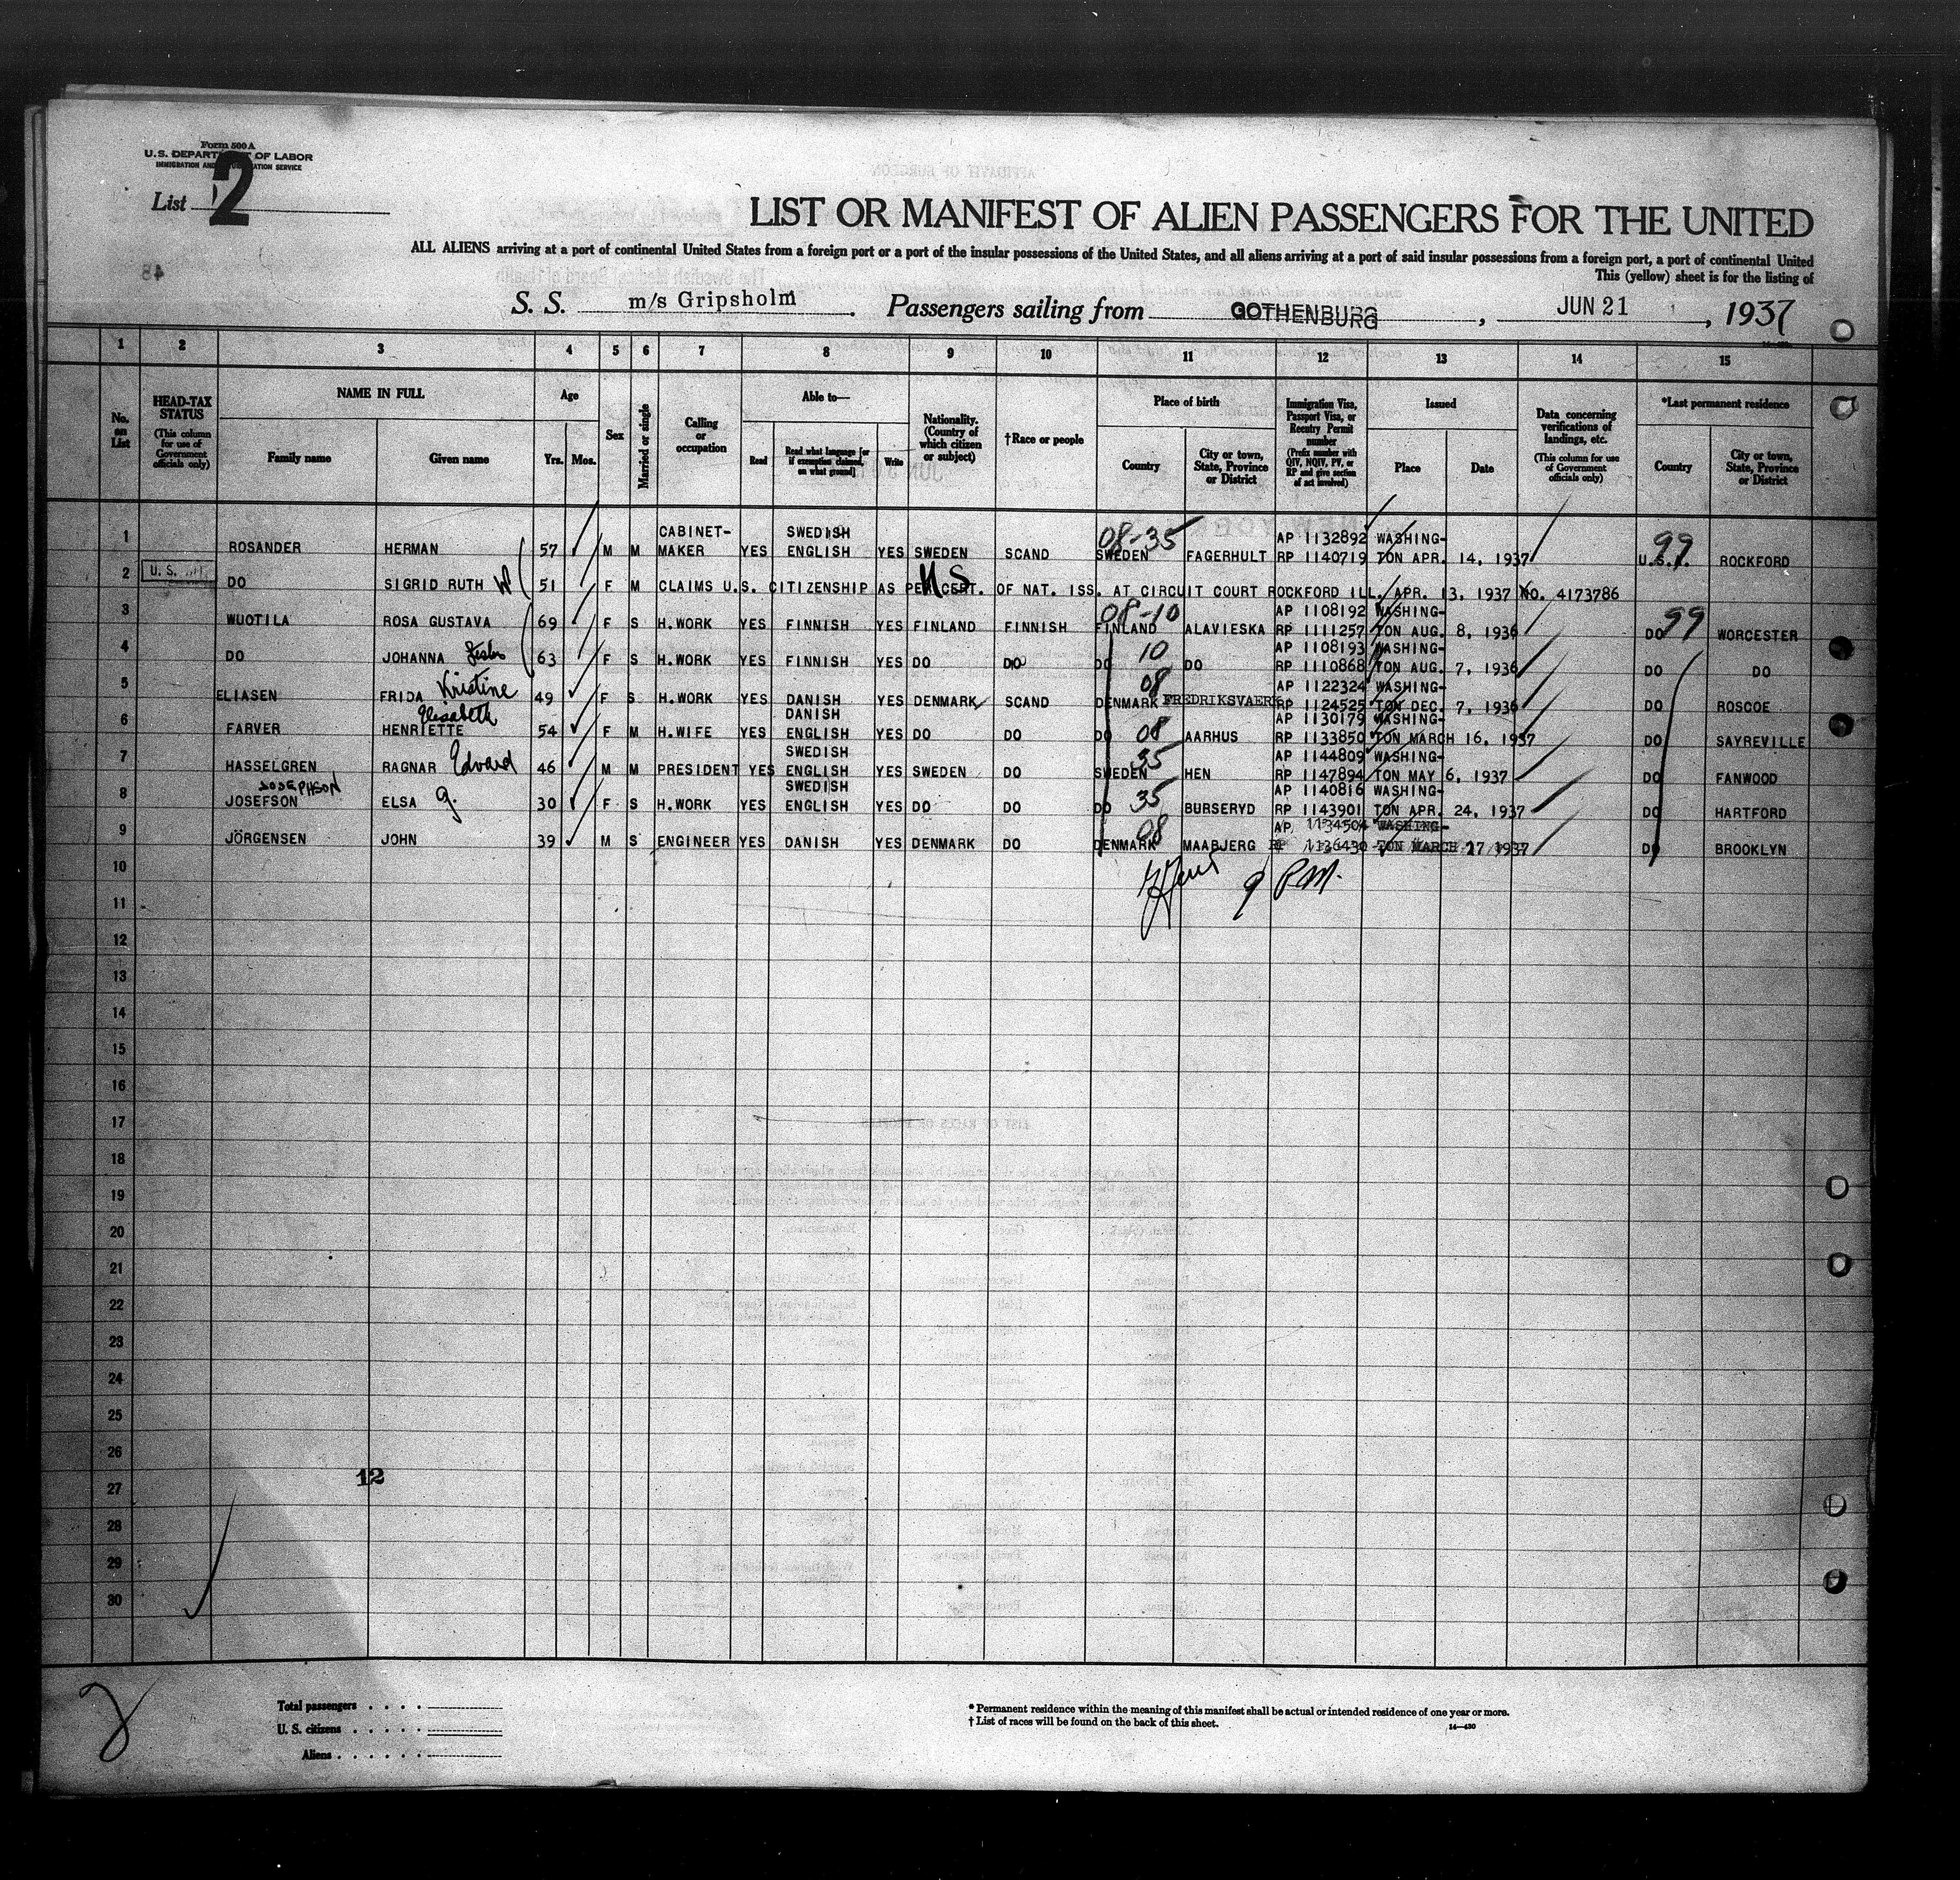 Form 500 A
U.S. DEPARTMENT OF LABOR
IMMIGRATION AND NATURALIZATION SERVICE
List 2
LIST OR MANIFEST OF ALIEN PASSENGERS FOR THE UNITED
ALL ALIENS arriving at a port of continental United States from a foreign port or a port of the insular possessions of the United States, and all aliens arriving at a port of said insular possessions from a foreign port, a port of continental United
This (yellow) sheet is for the listing of
S. S. m/s Gripsholm. Passengers sailing from GOTHENBURG, JUN 21, 1937
1 2 3 4 5 6 7 8 9 10 11 12 13 14 15
No. on List
HEAD-TAX STATUS (This column for use of Government officials only)
NAME IN FULL
Family name
Given name
Age
Yrs. Mos.
Sex
Married or single
Calling or occupation
Able to—
Read
Read what language [or if exemption claimed, on what ground]
Write
Nationality. (Country of which citizen or subject)
†Race or people
Place of birth
Country
City or town, State, Province or District
Immigration Visa, Passport Visa, or Reentry Permit number (Prefix number with QIV, NQIV, PV, or RP and give section of act involved)
Issued
Place
Date
Data concerning verifications of landings, etc. (This column for use of Government officials only)
*Last permanent residence
Country
City or town, State, Province or District
CABINET- SWEDISH 08-35 AP 1132892 WASHING- 99
1 ROSANDER HERMAN 57 M M MAKER YES ENGLISH YES SWEDEN SCAND SWEDEN FAGERHULT RP 1140719 TON APR. 14, 1937 U.S.A. ROCKFORD
2 U.S. DO SIGRID RUTH W 51 F M CLAIMS U.S. CITIZENSHIP AS PER CERT. OF NAT. ISS. AT CIRCUIT COURT ROCKFORD ILL. APR. 13, 1937 No. 4173786
US
08-10 AP 1108192 WASHING- 99
3 WUOTILA ROSA GUSTAVA 69 F S H.WORK YES FINNISH YES FINLAND FINNISH FINLAND ALAVIESKA RP 1111257 TON AUG. 8, 1936 DO WORCESTER
10 AP 1108193 WASHING-
4 DO JOHANNA Sister 63 F S H.WORK YES FINNISH YES DO DO DO DO RP 1110868 TON AUG. 7, 1936 DO DO
08 AP 1122324 WASHING-
5 ELIASEN FRIDA Kristine 49 F S H.WORK YES DANISH YES DENMARK SCAND DENMARK FREDRIKSVAERK RP 1124525 TON DEC. 7, 1936 DO ROSCOE
Elisabeth DANISH AP 1130179 WASHING-
6 FARVER HENRIETTE 54 F M H.WIFE YES ENGLISH YES DO DO DO 08 AARHUS RP 1133850 TON MARCH 16, 1937 DO SAYREVILLE
SWEDISH 35 AP 1144809 WASHING-
7 HASSELGREN RAGNAR Edvard 46 M M PRESIDENT YES ENGLISH YES SWEDEN DO SWEDEN HEN RP 1147894 TON MAY 6, 1937 DO FANWOOD
JOSEPHSON SWEDISH AP 1140816 WASHING-
8 JOSEFSON ELSA G. 30 F S H.WORK YES ENGLISH YES DO DO DO 35 BURSERYD RP 1143901 TON APR. 24, 1937 DO HARTFORD
08 AP 1134504 WASHING-
9 JÖRGENSEN JOHN 39 M S ENGINEER YES DANISH YES DENMARK DO DENMARK MAABJERG RP 1136430 TON MARCH 27 1937 DO BROOKLYN
10
9
11
12
13
14
15
16
17
18
19
20
21
22
23
24
25
26
12
27
28
29
30
Total passengers
U. S. citizens
Aliens
* Permanent residence within the meaning of this manifest shall be actual or intended residence of one year or more.
† List of races will be found on the back of this sheet.
14—430